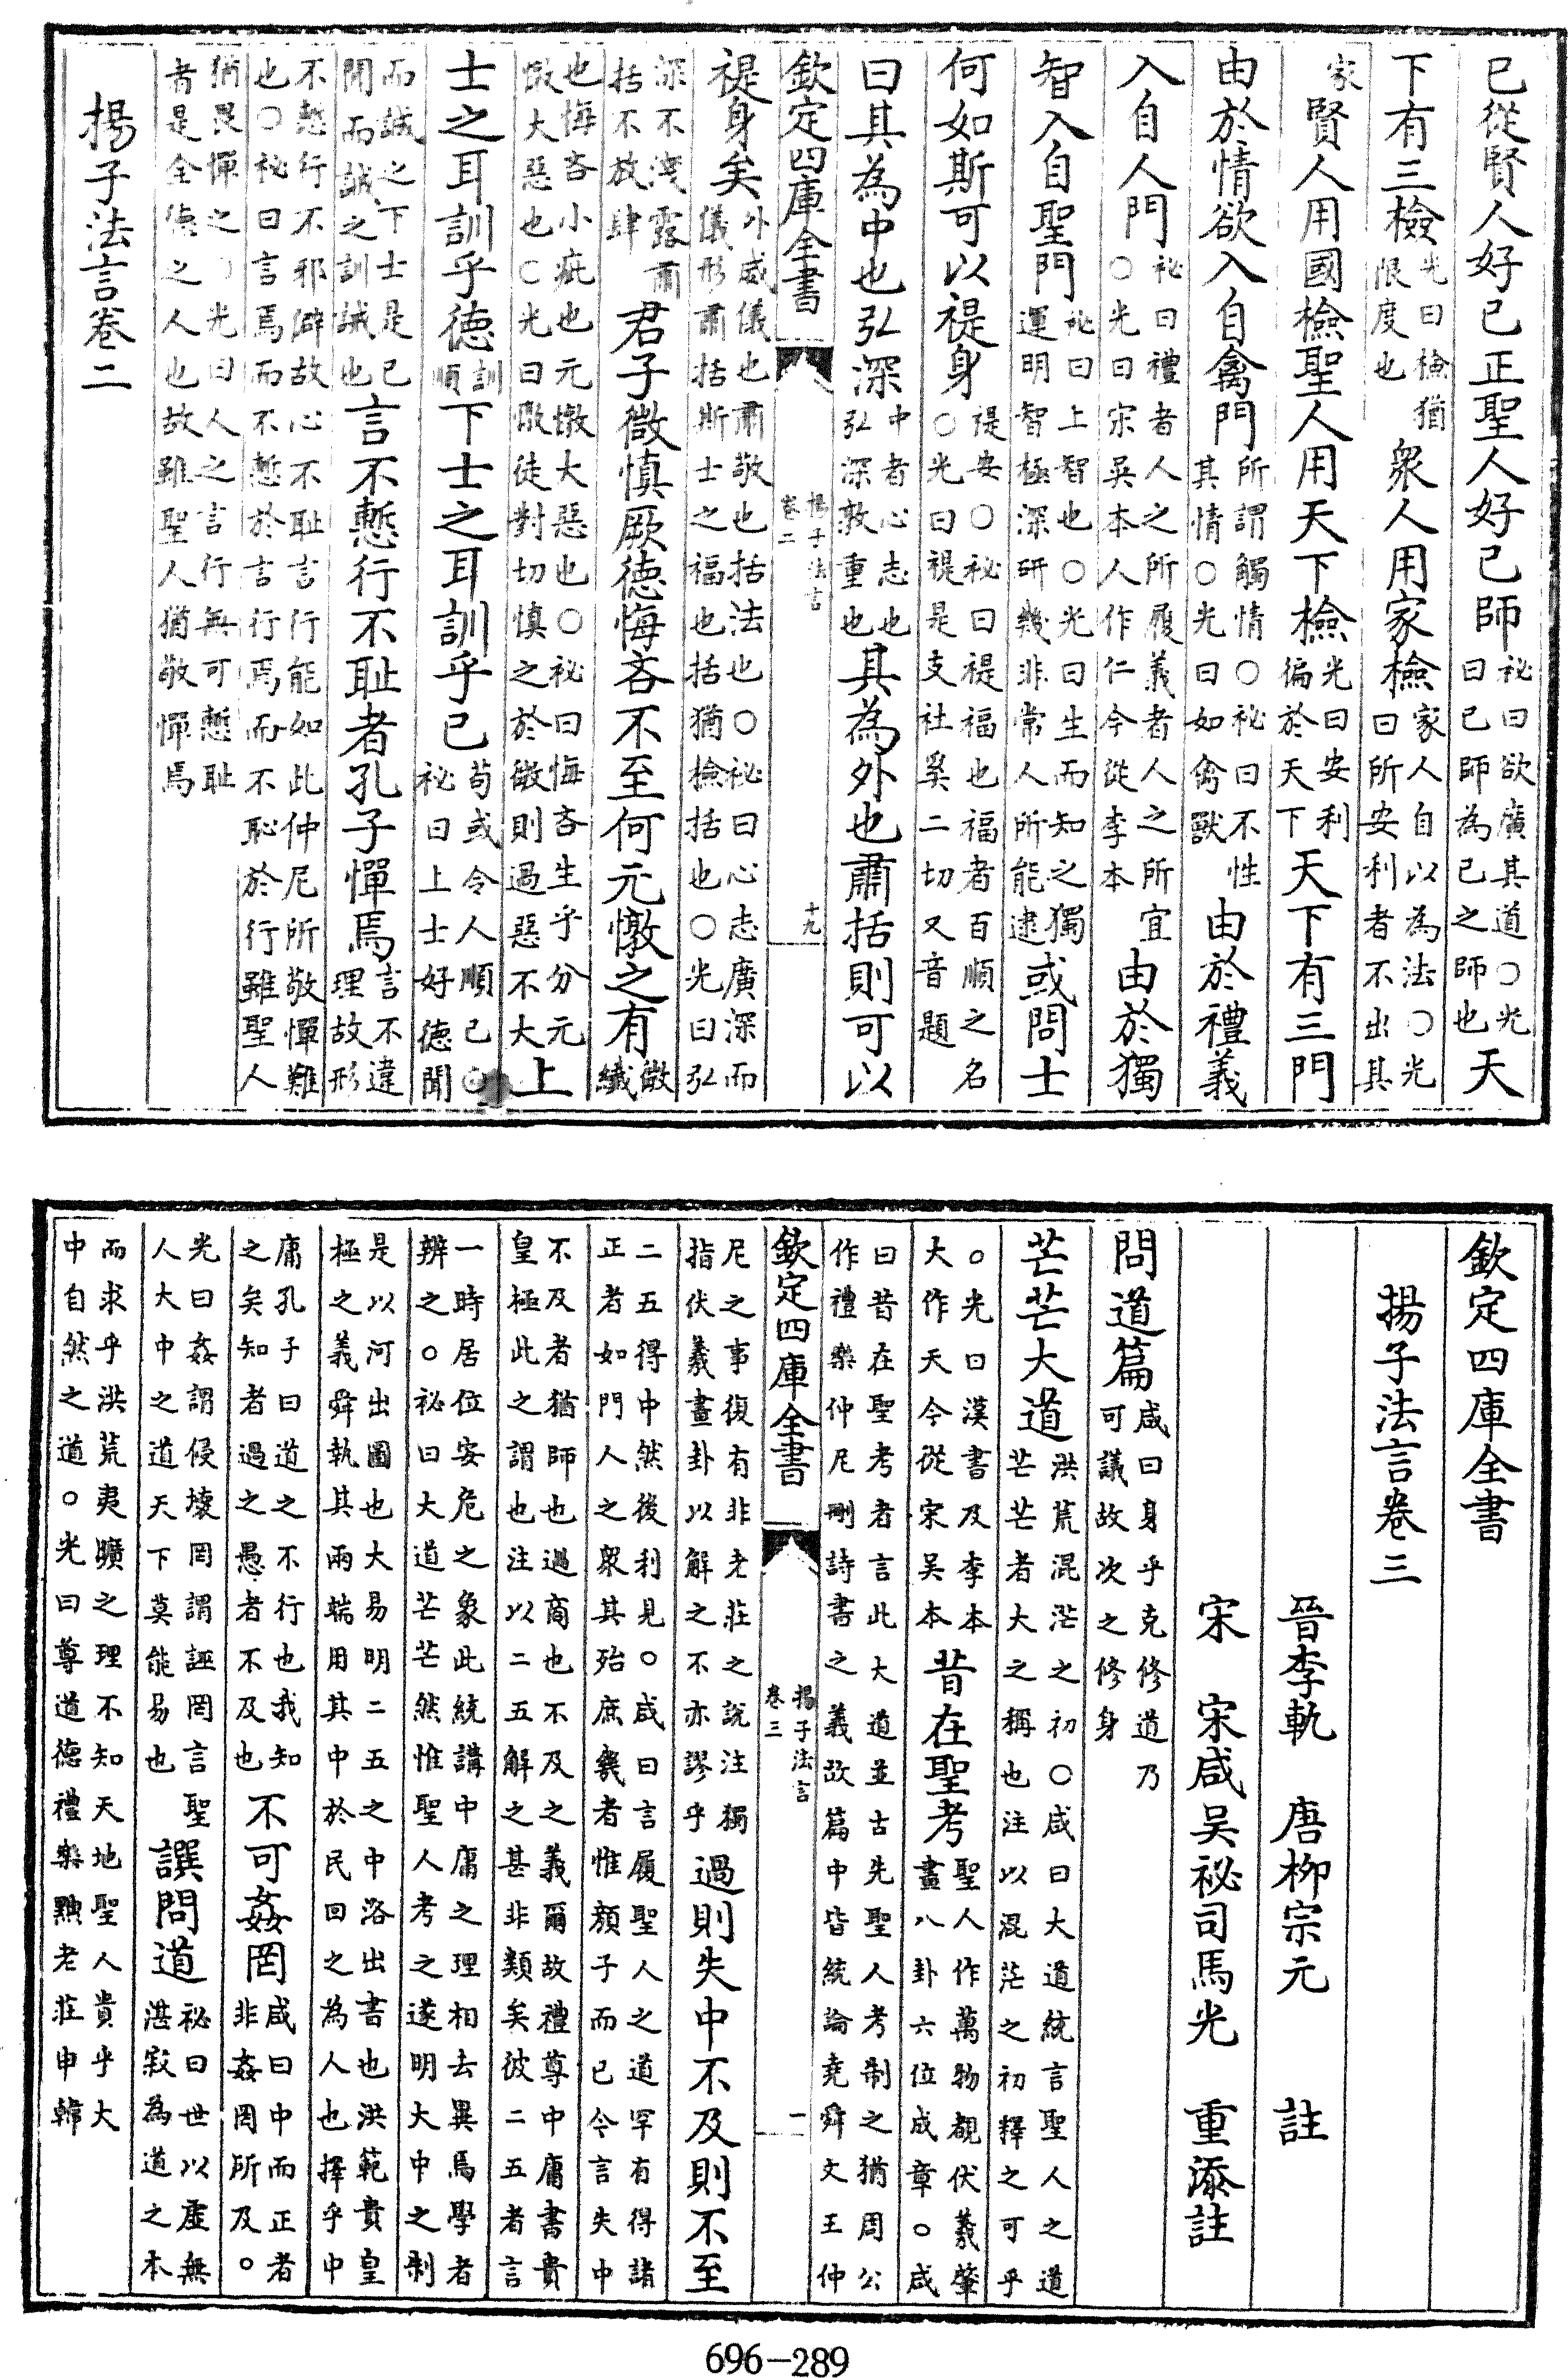 已從賢人好已正聖人好已師秘曰欲廣其道〇光曰已師為已之師也天
下有三檢光曰檢猶限度也衆人用家檢家人自以為法〇光曰所安利者不出其
家賢人用國檢聖人用天下檢光曰安利徧於天下天下有三門
由於情欲入自禽門所謂觸情〇秘曰不性其情〇光曰如禽獸由於禮義
入自人門秘曰禮者人之所履義者人之所宜〇光曰宋吳本人作仁今從李本由於獨
智入自聖門秘曰上智也〇光曰生而知之獨運明智極深研幾非常人所能逮或問士
何如斯可以禔身禔安〇秘曰禔福也福者百順之名〇光曰禔是支社奚二切又音題
曰其為中也弘深中者心志也弘深敦重也其為外也肅括則可以
欽定四庫全書 揚子法言卷二 十九
禔身矣外威儀也肅敬也括法也〇秘曰心志廣深而儀形肅括斯士之福也括猶檢括也〇光曰弘
深不洩露肅括不放肆君子微慎厥德悔吝不至何元憞之有微纖
也悔吝小疵也元憞大惡也〇秘曰悔吝生乎分元憞大惡也〇光曰憞徒對切慎之於微則過惡不大上
士之耳訓乎德訓順下士之耳訓乎已苟或令人順已〇秘曰上士好德聞
而誠之下士是已聞而誠之訓誠也言不慙行不耻者孔子憚焉言不違理故形
不慙行不邪僻故心不耻言行能如此仲尼所敬憚難也〇秘曰言焉而不慙於言行焉而不恥於行雖聖人
猶畏憚之〇光曰人之言行無可慙耻者是全德之人也故雖聖人猶敬憚焉
揚子法言卷二
欽定四庫全書
揚子法言卷三
晉李軌 唐柳宗元 註
宋 宋咸吳祕司馬光 重添註
問道篇咸曰身乎克修道乃可議故次之修身
芒芒大道洪荒混茫之初〇咸曰大道統言聖人之道芒芒者大之稱也注以混茫之初釋之可乎
〇光曰漢書及李本大作天今從宋吳本昔在聖考聖人作萬物覩伏羲肇畫八卦六位成章〇咸
曰昔在聖考者言此大道並古先聖人考制之猶周公作禮樂仲尼刪詩書之義故篇中皆統論堯舜文王仲
欽定四庫全書 揚子法言卷三 一
尼之事復有非老莊之說注獨指伏羲畫卦以解之不亦謬乎過則失中不及則不至
二五得中然後利見〇咸曰言履聖人之道罕有得諸正者如門人之衆其殆庶幾者惟顏子而已今言失中
不及者猶師也過商也不及之義爾故禮尊中庸書貴皇極此之謂也注以二五解之甚非類矣彼二五者言
一時居位安危之象此統講中庸之理相去異焉學者辨之〇秘曰大道芒芒然惟聖人考之遂明大中之制
是以河出圖也大易明二五之中洛出書也洪範貴皇極之義舜執其兩端用其中於民回之為人也擇乎中
庸孔子曰道之不行也我知之矣知者過之愚者不及也不可姦罔咸曰中而正者非姦罔所及〇
光曰姦謂侵壞罔謂誣罔言聖人大中之道天下莫能易也譔問道秘曰世以虛無湛寂為道之本
而求乎洪荒夷曠之理不知天地聖人貴乎大中自然之道〇光曰尊道德禮樂黜老莊申韓
696-289